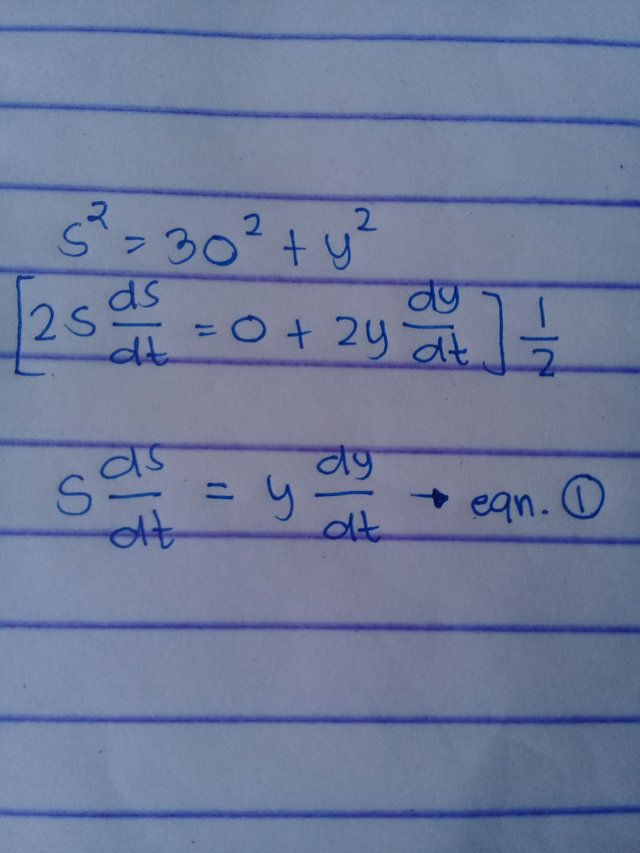 s² = 30² + y²
[2s ds/dt = 0 + 2y dy/dt] 1/2
s ds/dt = y dy/dt → eqn. ①